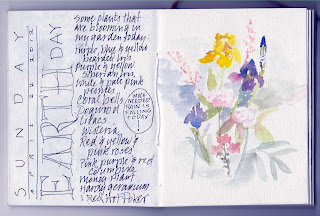 SUNDAY
APRIL 22 2012
EARTH DAY
Some plants that
are blooming in
my garden today:
Purple, blue & yellow
bearded iris
Purple & yellow
Siberian iris
White & pale pink
peonies
Coral bells
Dogwood
Lilacs
Wisteria
Red & yellow &
pink roses
Pink purple & red
columbine
Money Plant
Hardy geranium
& Red Hot Poker
MUCH
NEEDED
RAIN IS
FALLING
TODAY!